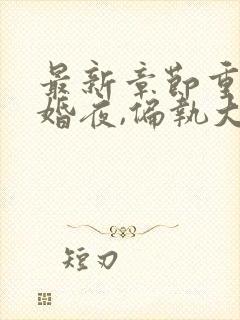 最新章节重
婚夜,偏执大
短刃